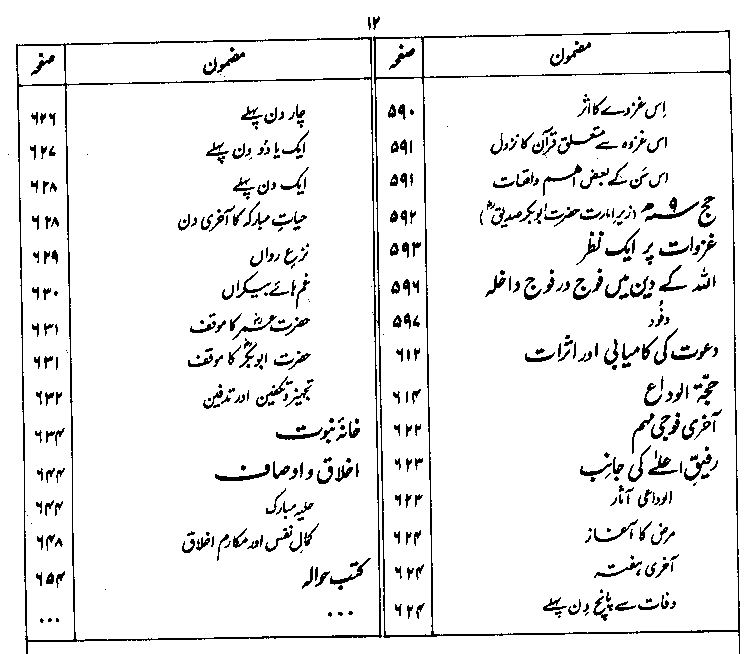 ۱۲
مضمون صفحہ
اِس غزوے کا اثر ۵۹۰
اس غزوہ سے متعلق قرآن کا نزول ۵۹۱
اس سَن کے بعض اہم واقعات ۵۹۱
حج ۹ھ (زیر امارت حضرت ابوبکر صدیقؓ) ۵۹۲
غزوات پر ایک نظر ۵۹۳
اللہ کے دین میں فوج در فوج داخلہ ۵۹۶
وفُود ۵۹۷
دعوت کی کامیابی اور اثرات ۶۱۲
حجۃ الوداع ۶۱۴
آخری فوجی مہم ۶۲۲
رفیقِ اعلےٰ کی جانِب ۶۲۳
الوداعی آثار ۶۲۳
مرض کا آغاز ۶۲۴
آخری ہفتہ ۶۲۴
وفات سے پانچ دِن پہلے ۶۲۴
مضمون صفحہ
چار دن پہلے ۶۲۶
ایک یا دُو دِن پہلے ۶۲۷
ایک دن پہلے ۶۲۸
حیاتِ مبارکہ کا آخری دن ۶۲۸
نزعِ رواں ۶۲۹
غم ہائے بیکراں ۶۳۰
حضرت عمرؓ کا موقف ۶۳۱
حضرت ابوبکرؓ کا موقف ۶۳۱
تجہیز و تکفین اور تدفین ۶۳۲
خانۂ نبوت ۶۳۴
اخلاق و اوصاف ۶۴۴
حلیہ مبارک ۶۴۴
کمالِ نفس اور مکارمِ اخلاق ۶۴۸
کتب حوالہ ۶۵۴
... ...